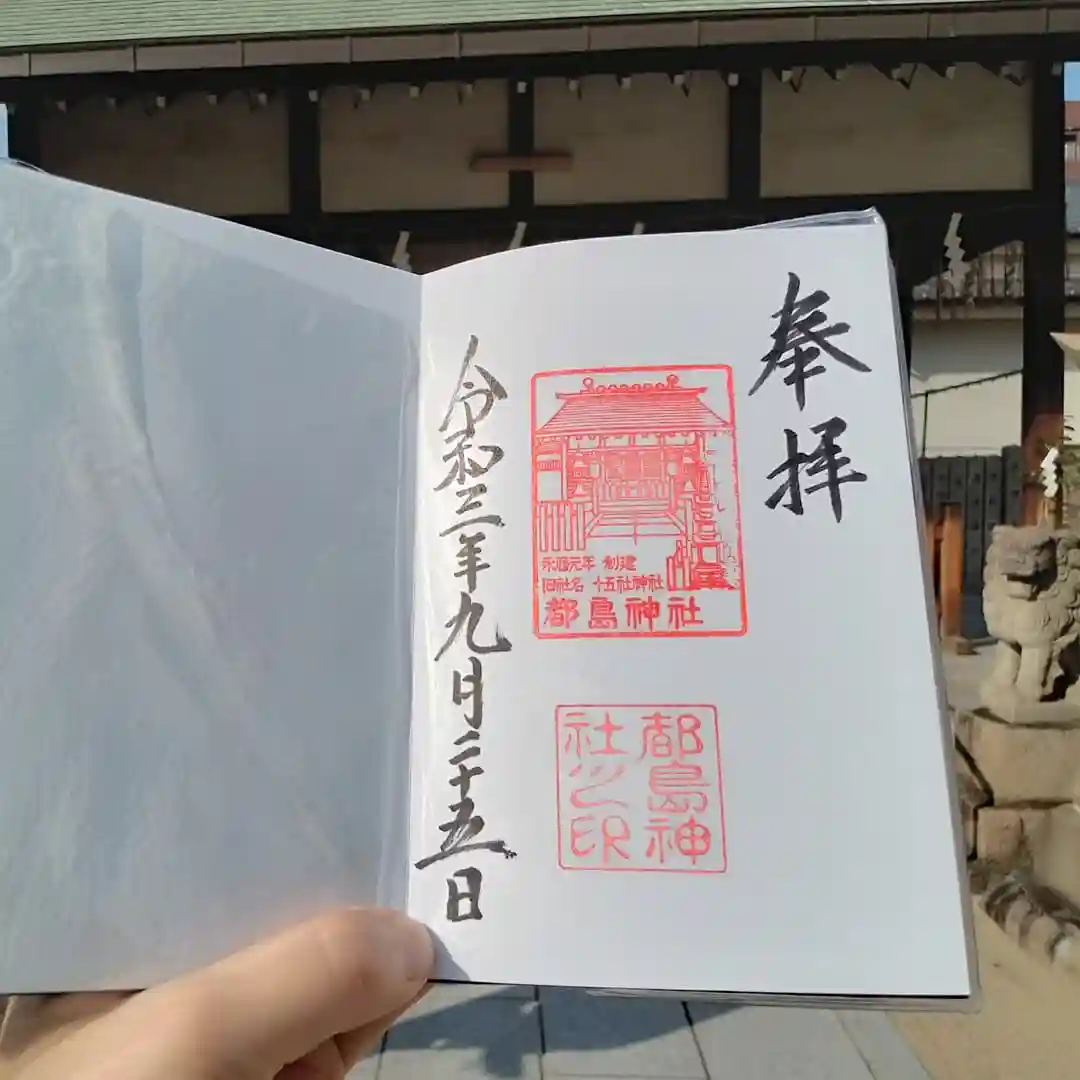 奉拝
永暦元年 創建
旧社名 十五社神社
都島神社
都島神
社之印
令和三年九月二十五日